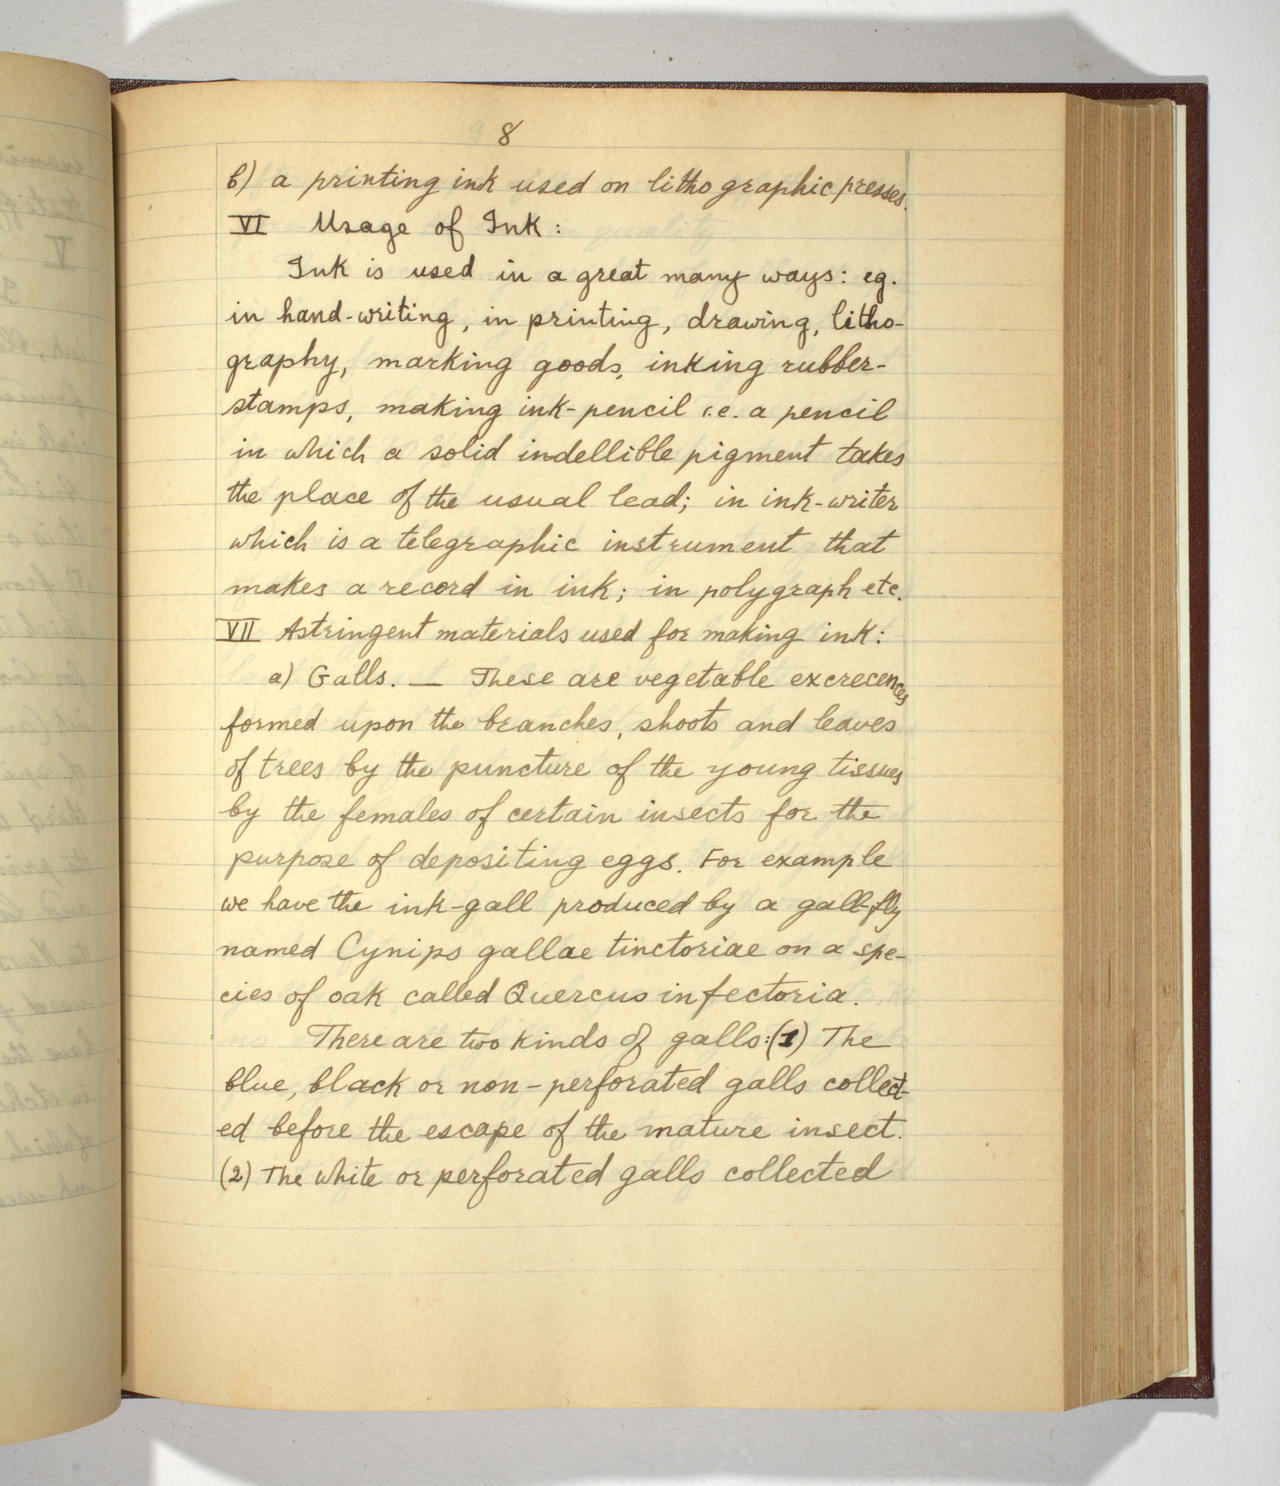 8
b) a printing ink used on lithographic presses.
VI Usage of Ink:
Ink is used in a great many ways: eg.
in hand-writing, in printing, drawing, litho-
graphy, marking goods, inking rubber-
stamps, making ink-pencil i.e. a pencil
in which a solid indellible pigment takes
the place of the usual lead; in ink-writer
which is a telegraphic instrument that
makes a record in ink; in polygraph etc.
VII Astringent materials used for making ink:
a) Galls. — These are vegetable excrecences
formed upon the branches, shoots and leaves
of trees by the puncture of the young tissues
by the females of certain insects for the
purpose of depositing eggs. For example
we have the ink-gall produced by a gall-fly
named Cynips gallae tinctoriae on a spe-
cies of oak called Quercus infectoria.
There are two kinds of galls: (1) The
blue, black or non-perforated galls collect-
ed before the escape of the mature insect.
(2) The white or perforated galls collected